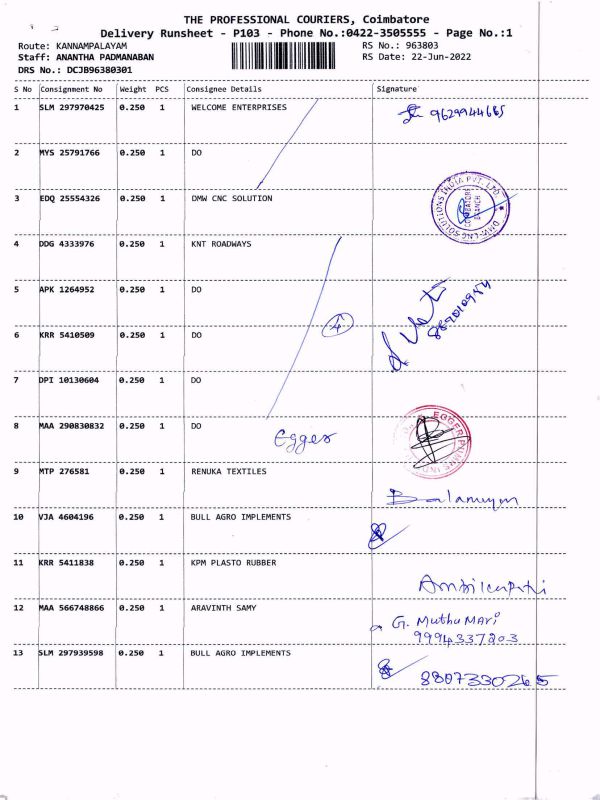 THE PROFESSIONAL COURIERS, Coimbatore
Delivery Runsheet - P103 - Phone No.:0422-3505555 - Page No.:1
Route: KANNAMPALAYAM RS No.: 963803
Staff: ANANTHA PADMANABAN RS Date: 22-Jun-2022
DRS No.: DCJB96380301
S No Consignment No Weight PCS Consignee Details Signature
1 SLM 297970425 0.250 1 WELCOME ENTERPRISES 9629944685
2 MYS 25791766 0.250 1 DO
3 EDQ 25554326 0.250 1 DMW CNC SOLUTION
DMW-CNC SOLUTIONS INDIA PVT. LTD
COIMBATORE
BRANCH
4 DDG 4333976 0.250 1 KNT ROADWAYS
5 APK 1264952 0.250 1 DO
6 KRR 5410509 0.250 1 DO 4
7 DPI 10130604 0.250 1 DO
8 MAA 290830832 0.250 1 DO Egger
EGGER PUMPS
9 MTP 276581 0.250 1 RENUKA TEXTILES
10 VJA 4604196 0.250 1 BULL AGRO IMPLEMENTS
11 KRR 5411838 0.250 1 KPM PLASTO RUBBER
12 MAA 566748866 0.250 1 ARAVINTH SAMY G. Muthu Mari
9994337203
13 SLM 297939598 0.250 1 BULL AGRO IMPLEMENTS
8807330265